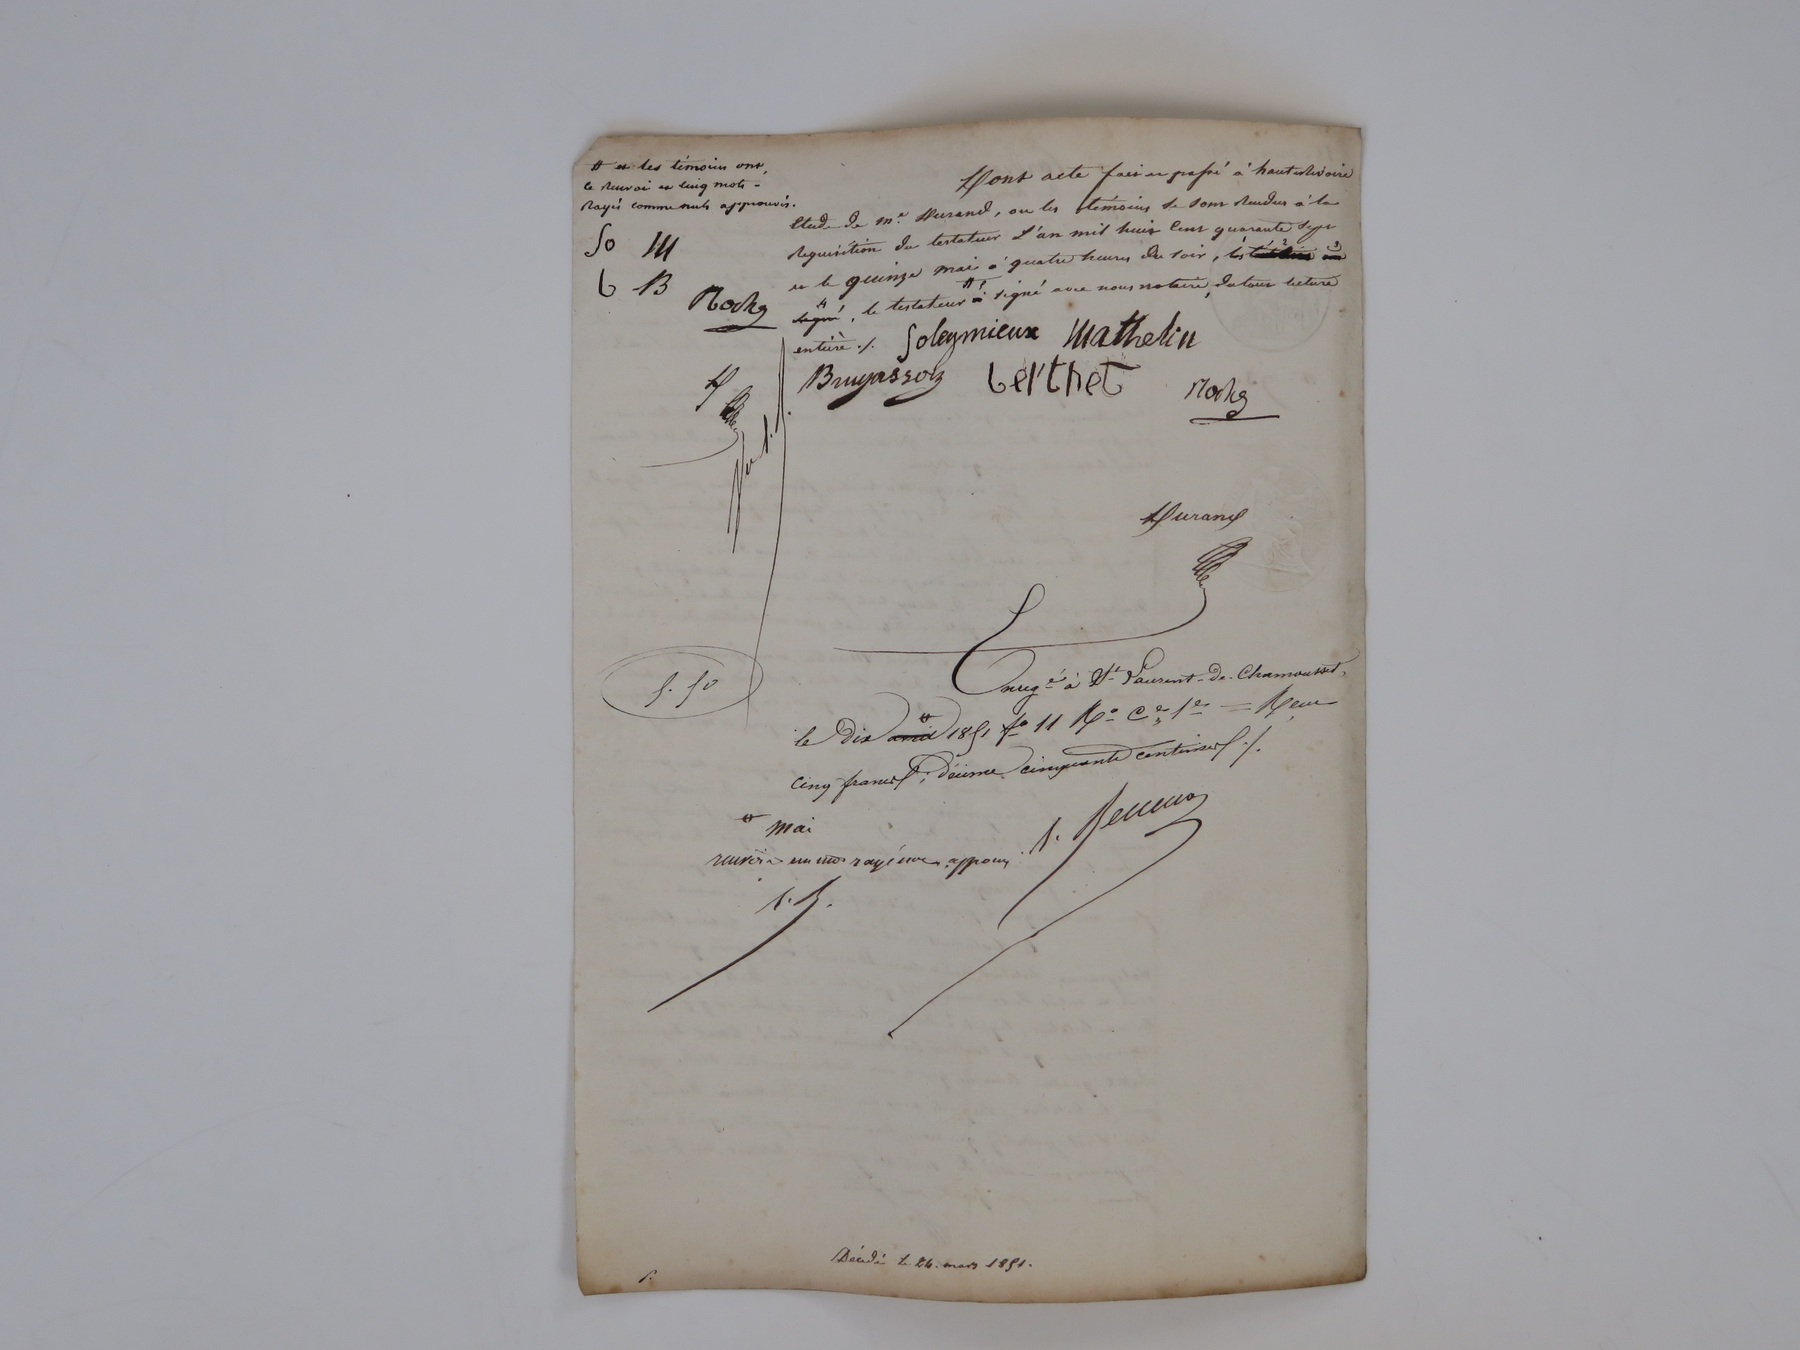 # et les témoins ont,
ce renvoi et cinq mots -
rayés comme nuls approuvés.
So M
b B
Rochg
Dont acte fait et passé à hauterivoire
Etude de me Durand, où les témoins se sont rendus à la
requisition du testateur L'an mil huit cent quarante sept
et le quinze mai à quatre heures du soir, les
signé, le testateur # a signé avec nous notaire, du tout lecture
entière ./.
Soleymieux Mathelin
Bruyassolz berthet Rochg
D
Durand
5.50
Enregé à St Laurent-de-Chamousset,
le dix avril # 1851 fo 11 Ro Ces 1re = Reçu
cinq francs, décime cinquante centimes ./.
# mai
renvoi et un mot rayé nul approuvé
Décédé le 24 mars 1851.